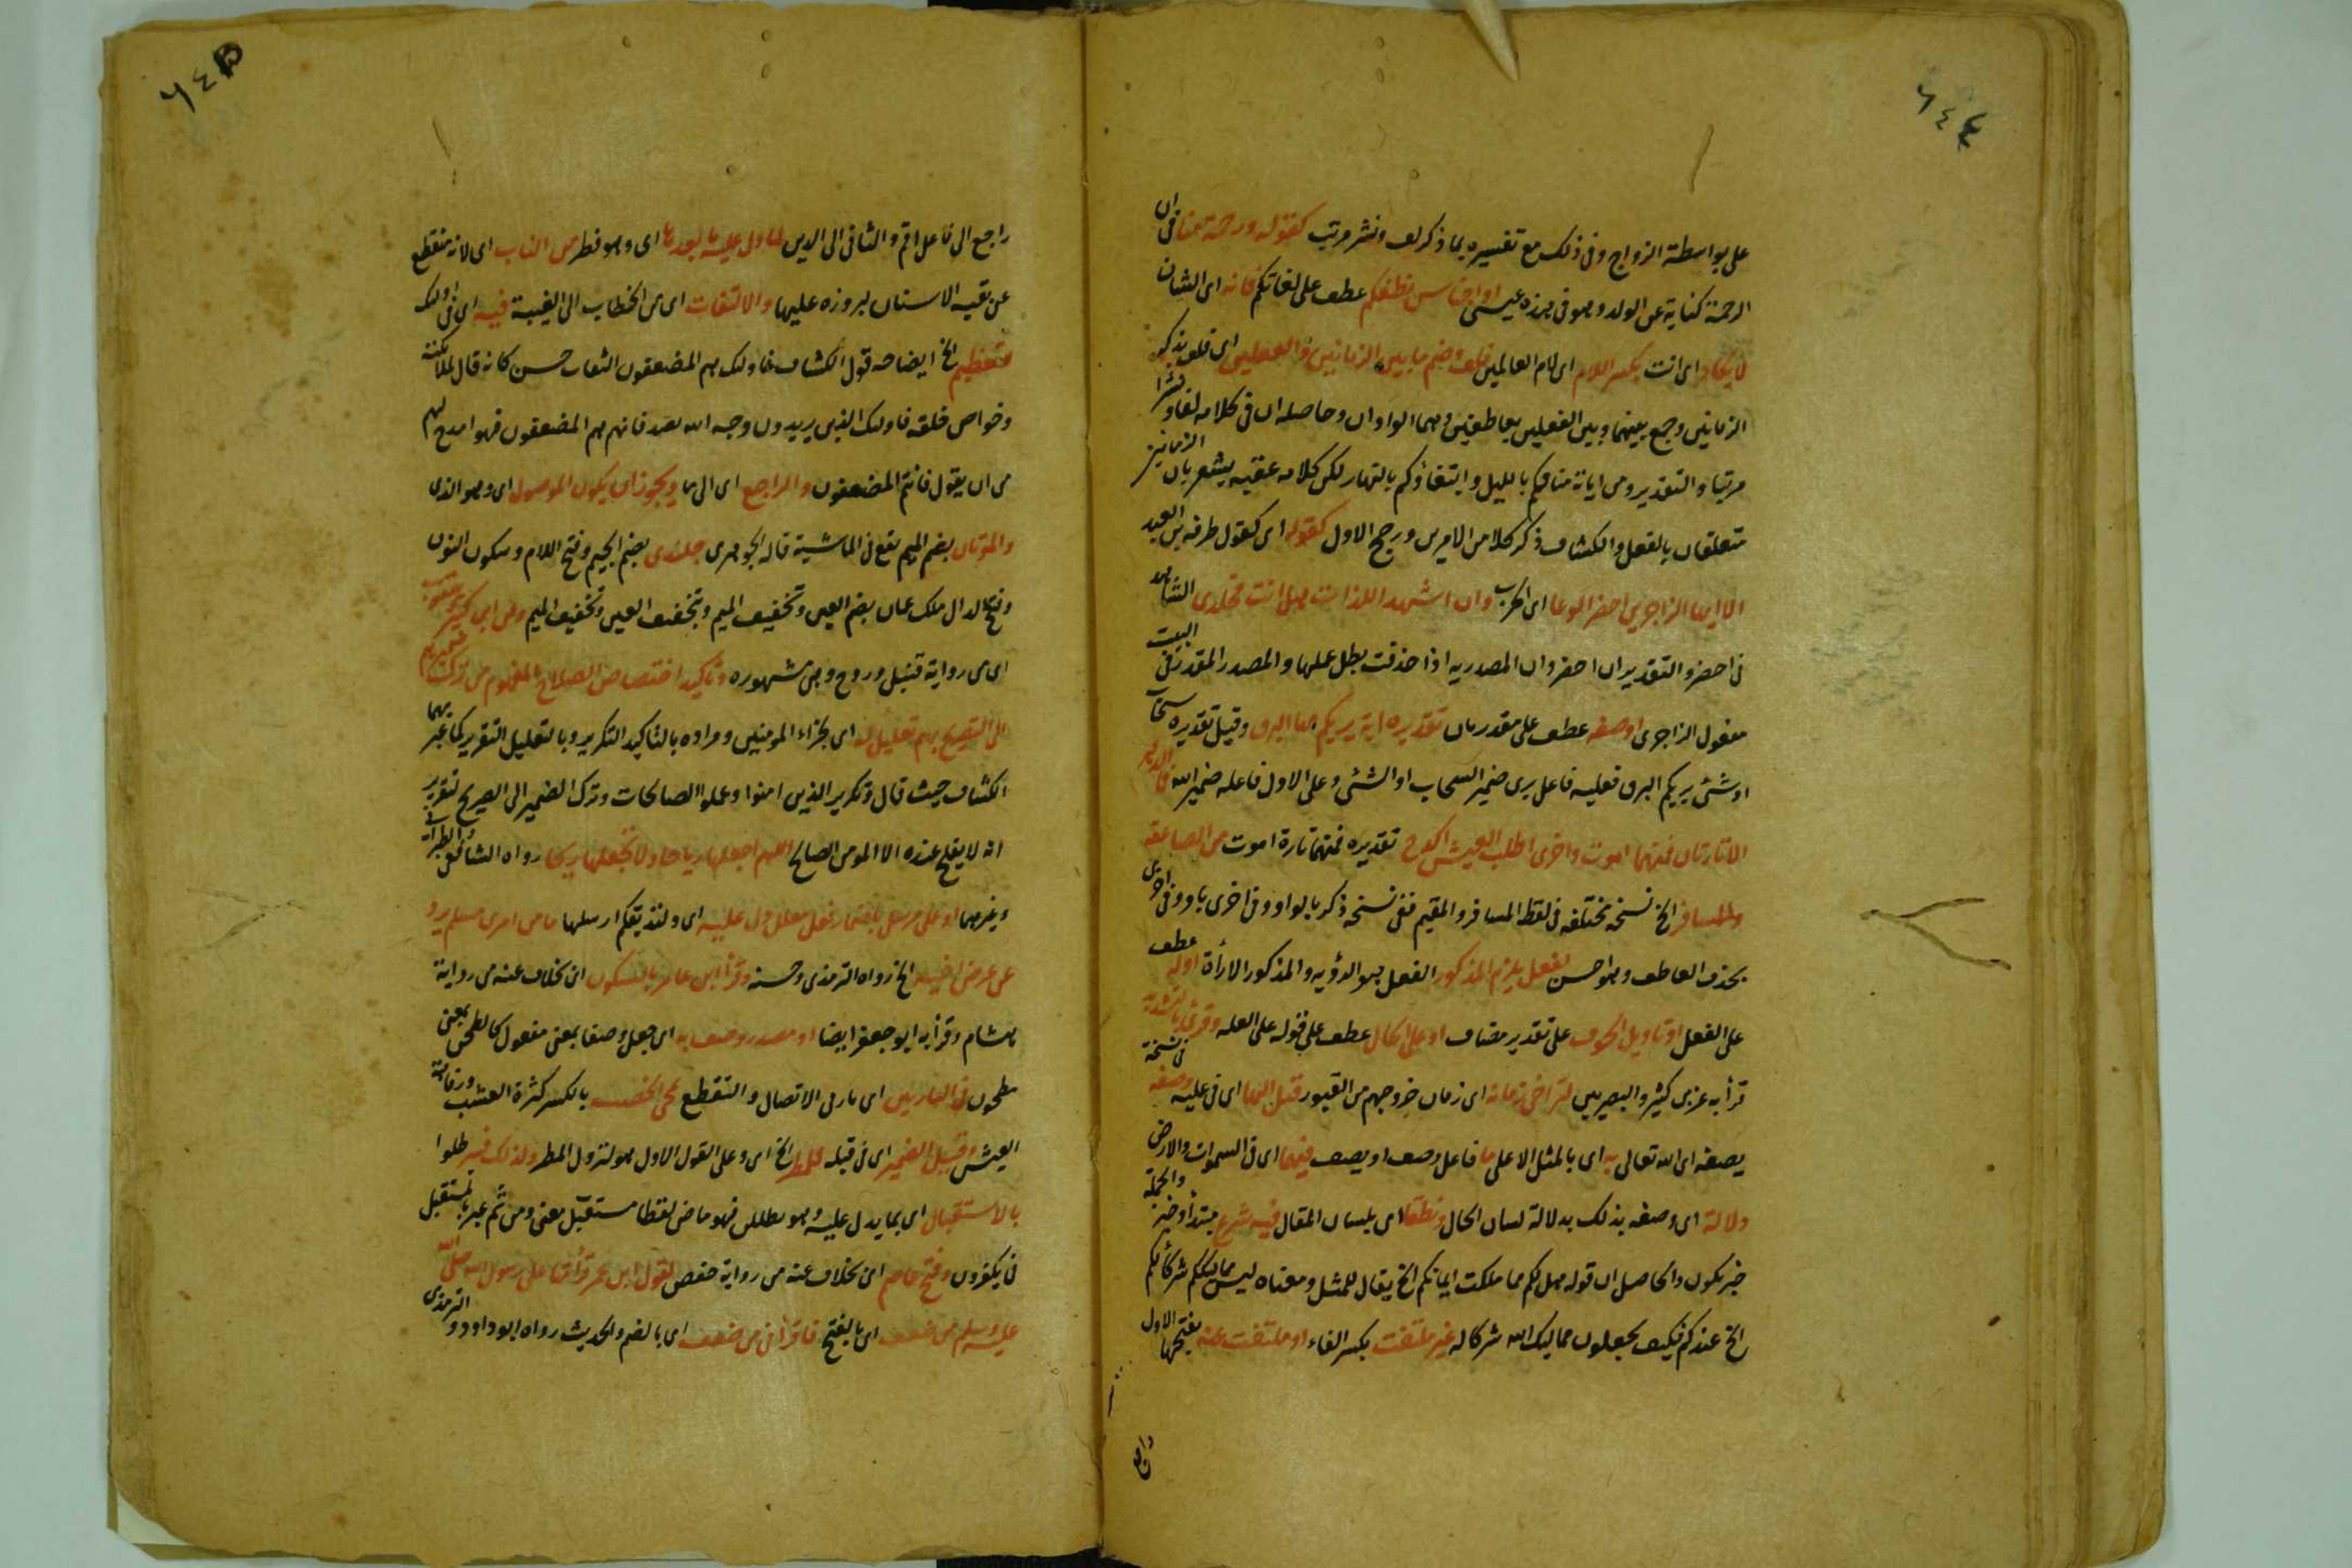 ٦٤٤
على بواسطة الزواج وفى ذلك مع تفسيره بما ذكر لف ونشر مرتب كقوله ورحمة منا فى ان
الرحمة كناية عن الولد وهو فى هذه عيسى او اجناس نطقكم عطف على لغاتكم فانه اى الشان
لا يكاد اى انت بكسر اللام اى لام العالمين فلف وضم ما بين الزمانين والفعلين اى فلف بذكر
الزمانين وجمع بينهما وبين الفعلين بعاطفين وهما الواوان وحاصله ان فى كلامه لفا ونشرا
مرتبا والتقدير ومن اياته منامكم بالليل وابتغاؤكم بالنهار لكن كلامه عقبه يشعر بان الزمانين
متعلقان بالفعل والكشاف ذكر كلا من الامرين ورجح الاول كقوله اى كقول طرفة بن العبد
الا ايها الزاجرى احضر الوغا اى الحرب وان اشهد اللذات هل انت مخلدى الشاهد
فى احضر والتقدير ان احضر وان المصدريه اذا حذفت بطل عملها والمصدر المقدر فى البيت
مفعول الزاجرى او صفه عطف على مقدر بان تقديره اية يريكم بها البرق وقيل تقديره سحابا
او شئ يريكم البرق فعليه فاعل يرى ضمير السحاب او الشئ وعلى الاول فاعله ضمير الله فما الدهر
الا تارتان فمنهما اموت واخرى اطلب العيش اكدح تقديره فمنهما تارة اموت من الصاعقه
وللمسافر الخ نسخه مختلفه فى لفظ المسافر والمقيم ففى نسخه ذكر بالواو وفى اخرى باو وفى اخرى
بحذف العاطف وهو احسن لفعل يلزم المذكور الفعل هو الرؤيه والمذكور الاراة اوله عطف
على الفعل او تاويل الخوف على تقدير مضاف او على الحال عطف على قوله على العله وقرئ بالتشديد
قرأ به غير ابن كثير والبصريين لتراخى زمانه اى زمان خروجهم من القبور قبل انهما اى فى عليه وصفه فى نسخة
يصفه اى الله تعالى به اى بالمثل الاعلى ما فاعل وصف او يصف فيهما اى فى السموات والارض
دلالة اى وصفه بذلك بدلالة لسان الحال ونطقا اى بلسان المقال فيه شرع مبتدأ وخبر والجملة
خبر تكون والحاصل ان قوله هل لكم مما ملكت ايمانكم الخ يقال للمثل ومعناه ليس مماليككم شركائكم
الخ عندكم فكيف يجعلون مماليك الله شركا له غير ملتفت بكسر الفاء او ملتفت عنه بفتحها الاول
٦٤٥
راجع الى فاعل اقم والثانى الى الدين لما دل عليه ما بعدها اى وهو فطر من الناب اى لانه منقطع
عن بقيه الاسنان لبروزه عليها والالتفات اى من الخطاب الى الغيبة فيه اى فى اولئك
تعظيم الخ ايضاحه قول الكشاف فاولئك هم المضعفون التفات حسن كانه قال لملائكته
وخواص خلقه فاولئك الذين يريدون وجه الله بصدقاتهم هم المضعفون فهو امدح لهم
من ان يقول فانتم المضعفون والراجع اى الى ما ويجوز ان يكون الموصول اى وهو الذى
والموتان بضم الميم يقع فى الماشية قاله الجوهرى جلندى بضم الجيم وفتح اللام وسكون النون
وفتح الدال ملك عمان بضم العين وتخفيف الميم وتخفيف العين وتخفيف الميم وعن ابن كثير ويعقوب
اى من رواية قنبل وروح وهى مشهوره وتاكيد اختصاص الصلاح المفهوم من ترك ضميرهم
الى التصريح بهم تعليل له اى بجزاء المومنين ومراده بالتاكيد التكرير وبالتعليل التقرير كما عبر بهما
الكشاف حيث قال وتكرير الذين امنوا وعملوا الصالحات وترك الضمير الى الصريح لتقرير
انه لا يفلح عنده الا المومن الصالح اللهم اجعلها رياحا ولا تجعلها ريحا رواه الشافعى والطبرانى
وغيرهما او على يرسل باضمار فعل معلل دل عليه اى ولنذيقكم ارسلها ما من امرئ مسلم يرد
عن عرض اخيه الخ رواه الترمذى وحسنه وقرأ ابن عامر بالسكون اى بخلاف عنه من رواية
هشام وقرأ به ابو جعفر ايضا او مصدر وصف به اى جعل وصفا بمعنى مفعول كالطحن بمعنى
مطحون فى التارتين اى تارتى الاتصال والتقطع محى الخصب بالكسر كثرة العشب ورفاهية
العيش وقيل الضمير اى فى قبله للمطر الخ اى وعلى القول الاول هو لنزول المطر ولذلك فسر ظلوا
بالاستقبال اى بما يدل عليه وهو ليظلن فهو ماض لفظا مستقبل معنى ومن ثم عبر بالمستقبل
فى يكفرون وفتح عاصم اى بخلاف عنه من رواية حفص لقول ابن عمر قرأتها على رسول الله صلى الله
عليه وسلم من ضعف اى بالفتح فاقرأنى من ضعف اى بالضم والحديث رواه ابو داود والترمذى